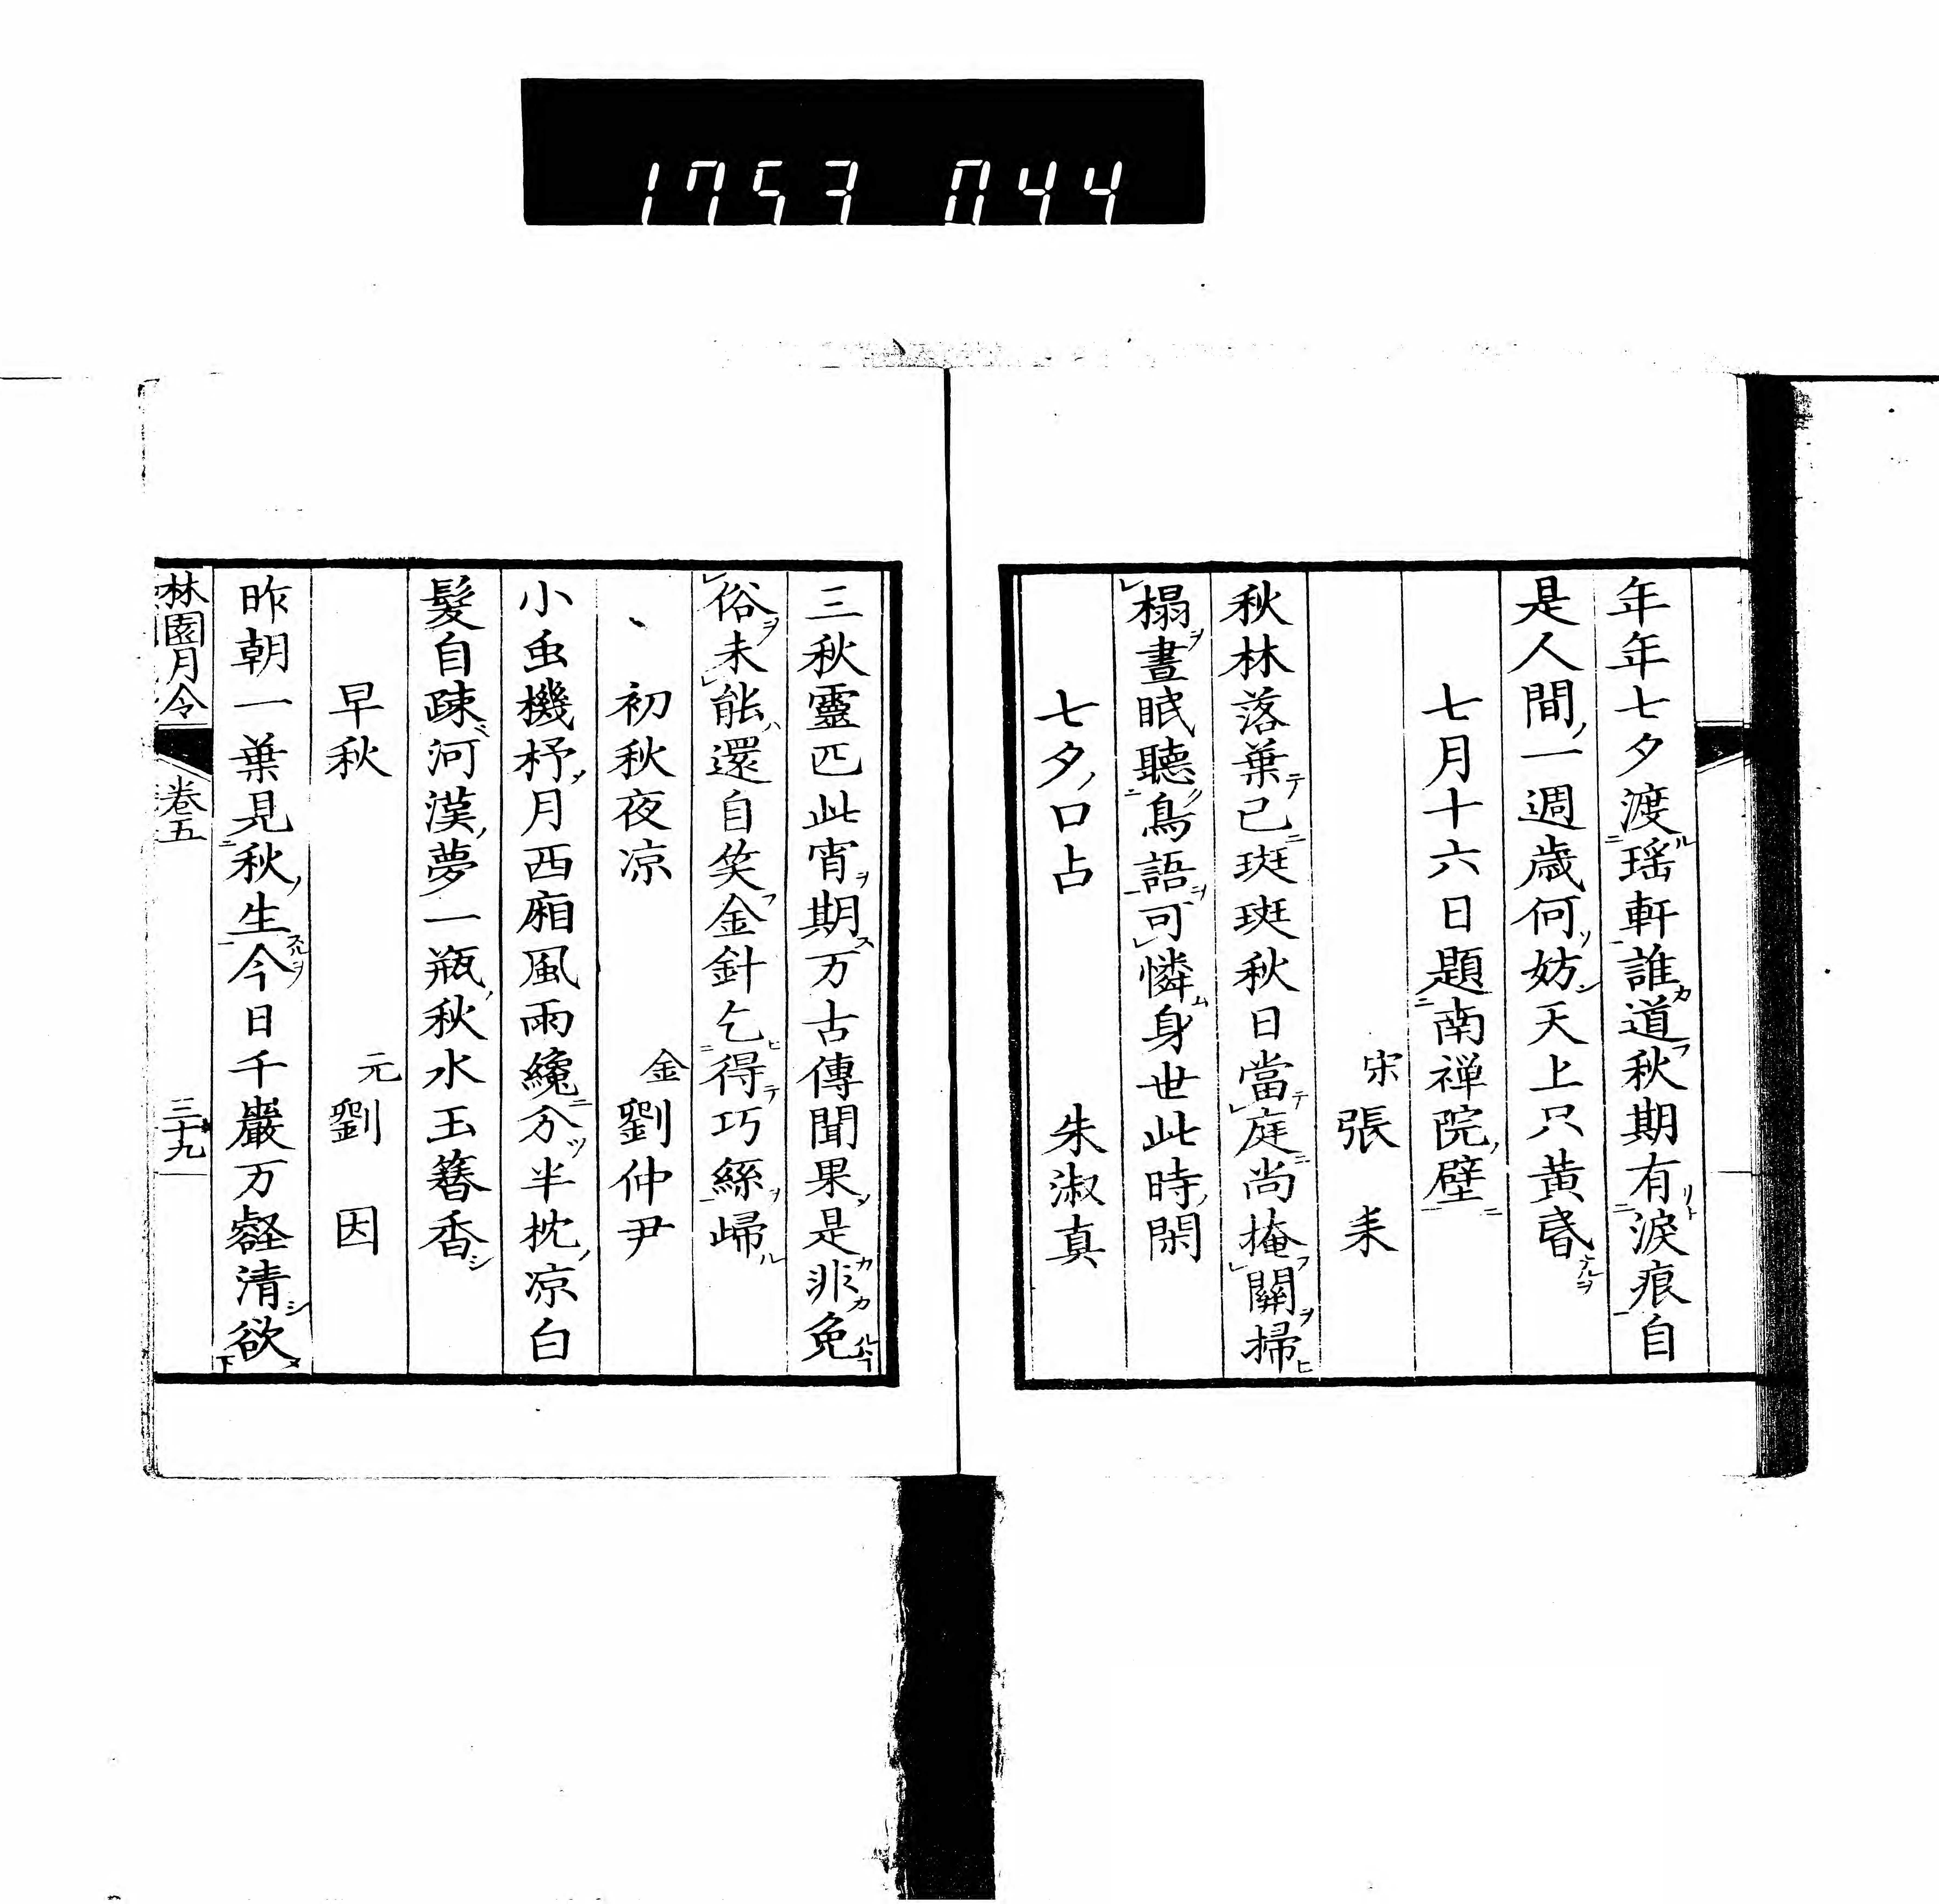 1753 044
年年七夕渡瑶軒誰道秋期有淚痕自
是人間一週歳何妨天上只黄昏
七月十六日題南禅院壁
宋張耒
秋林落葉已斑斑秋日當庭尚掩關掃
榻晝眠聽鳥語可憐身世此時閑
七夕口占 朱淑真
三秋靈匹此宵期万古傳聞果是非免
俗未能還自笑金針乞得巧絲歸
初秋夜凉 金劉仲尹
小虫機杼月西廂風雨纔分半枕凉白
髮自疎河漢夢一瓶秋水玉簪香
早秋 元劉因
昨朝一葉見秋生今日千巖万壑清欲
林園月令 卷五 三十九